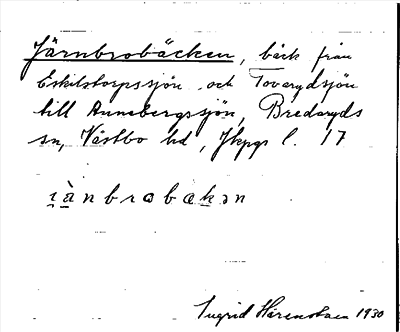 Järnbrobäcken, bäck från
Eskilstorpssjön och Tovarydsjön
till Annebergssjön, Bredaryds
sn, Västbo hd, Jkpgs l. 17
Ingrid 1930